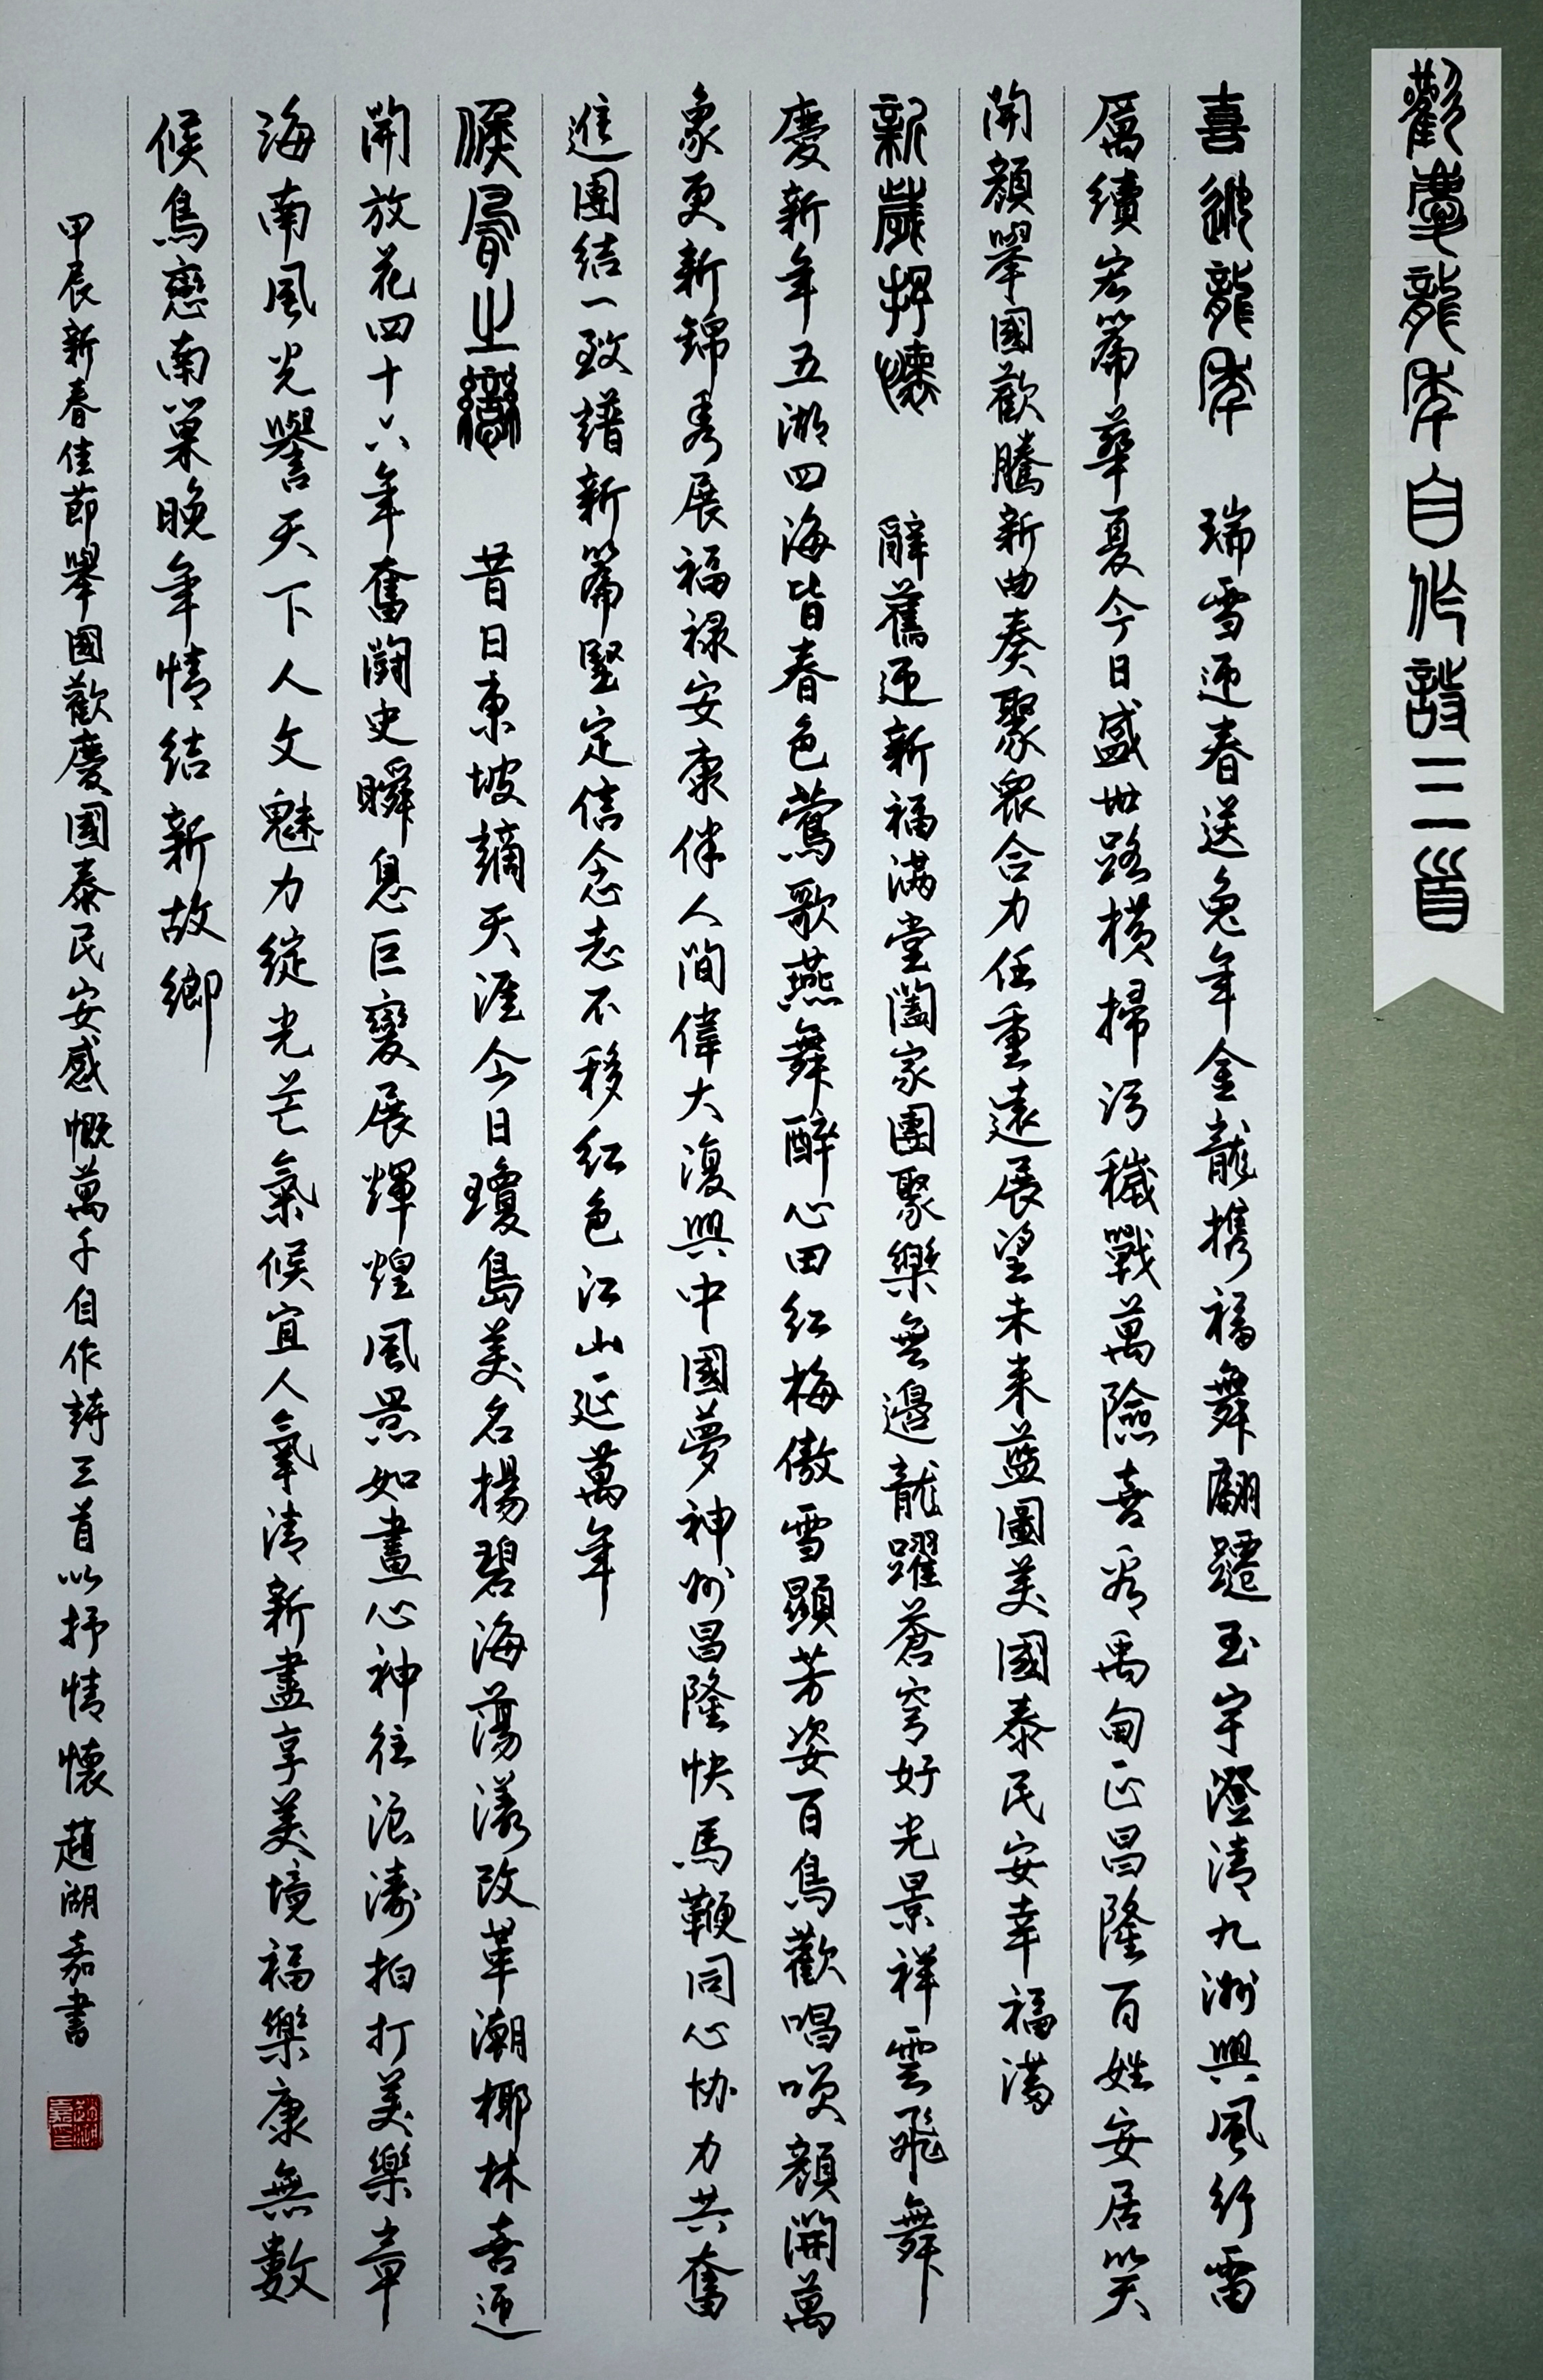 歡慶龍年自作詩三首
喜迎龍年 瑞雪迎春送兔年金龍携福舞翩躚玉宇澄清九洲興風行雷
厲續宏篇華夏今日盛世路橫掃污穢戰萬險喜看禹甸正昌隆百姓安居笑
開顏舉國歡騰新曲奏聚眾合力任重遠展望未来藍圖美國泰民安幸福滿
新歲抒懷 辭舊迎新福满堂闔家團聚樂無邊龍躍蒼穹好光景祥雲飛舞
慶新年五湖四海皆春色鶯歌燕舞醉心田紅梅傲雪顯芳姿百鳥歡唱笑顏開萬
象更新錦秀展福禄安康伴人間偉大復興中國夢神州昌隆快馬鞭同心协力共奮
進團结一致譜新篇堅定信念志不移红色江山延萬年
候鳥之戀 昔日東坡謫天涯今日瓊島美名揚碧海蕩漾改革潮椰林喜迎
開放花四十六年奮鬪史瞬息巨變展輝煌風景如畫心神往浪濤拍打美樂章
海南風光譽天下人文魅力綻光芒氣候宜人氧清新盡享美境福樂康無數
候鳥戀南巢晚年情结新故鄉
甲辰新春佳節舉國歡慶國泰民安感慨萬千自作詩三首以抒情懷趙湖嘉書